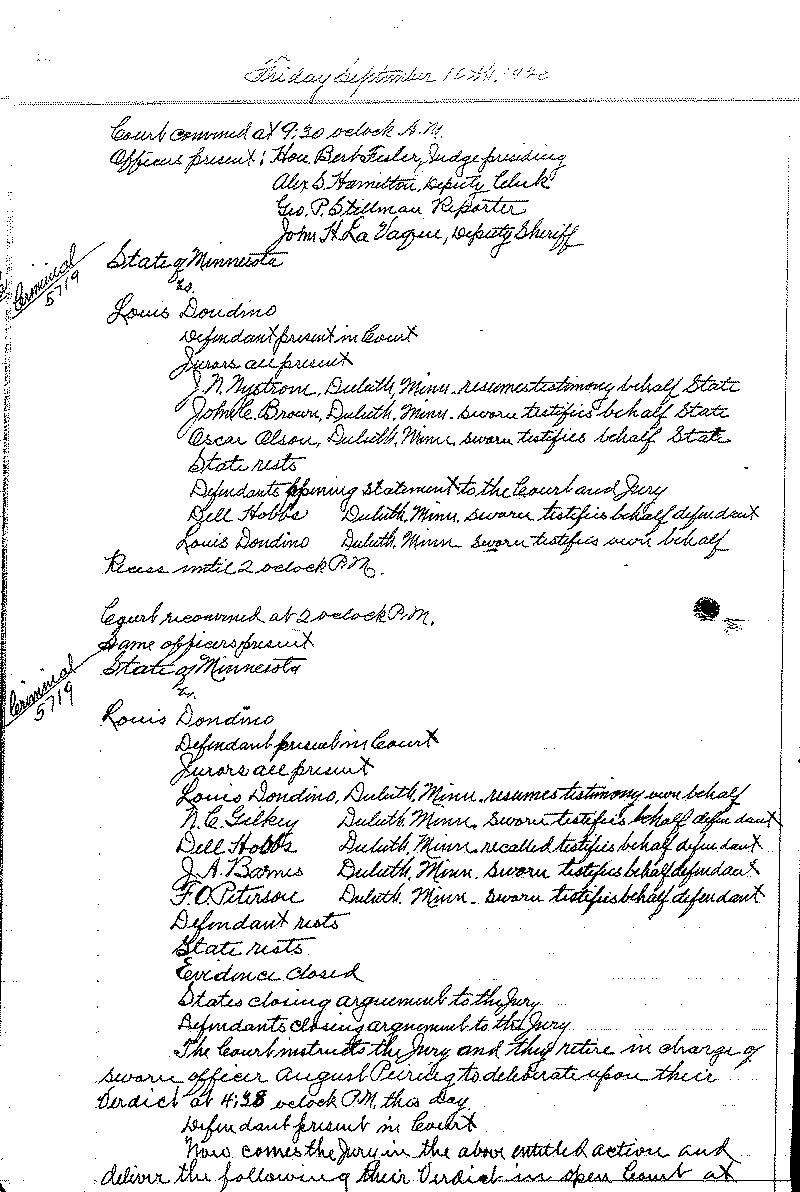 Friday September 10th, 1920
Court convened at 9:30 oclock A.M.
Officers present: Hon. Bert Fesler, Judge presiding
Alex S. Hamilton, Deputy Clerk
Geo. P. Stillman Reporter
John H La Vaque, Deputy Sheriff
Criminal
5719
State of Minnesota
vs.
Louis Dondino
Defendant present in Court
Jurors all present
J. N. Nystrom, Duluth, Minn. resumes testimony behalf State
John C. Brown, Duluth, Minn. sworn testifies behalf State
Oscar Olson, Duluth, Minn sworn testifies behalf State
State rests
Defendants opening statement to the Court and Jury
Dell Hobbs Duluth, Minn. sworn testifies behalf defendant
Louis Dondino Duluth, Minn sworn testifies own behalf
Recess until 2 oclock P.M.
Court reconvened at 2 oclock P.M.
Same officers present
Criminal
5719
State of Minnesota
vs.
Louis Dondino
Defendant present in Court
Jurors all present
Louis Dondino, Duluth, Minn. resumes testimony own behalf
N. C. Gilkey Duluth, Minn. sworn testifies behalf defendant
Dell Hobbs Duluth, Minn. recalled testifies behalf defendant
J. A. Barnes Duluth, Minn. sworn testifies behalf defendant
F. O. Peterson Duluth, Minn. sworn testifies behalf defendant
Defendant rests
State rests
Evidence closed
States closing arguement to the Jury
Defendants closing arguement to the Jury
The Court instructs the Jury and they retire in charge of
sworn officer August Peiring to deliberate upon their
Verdict at 4:38 oclock P.M. this day
Defendant present in Court
Now comes the Jury in the above entitled action and
deliver the following their Verdict in open Court at